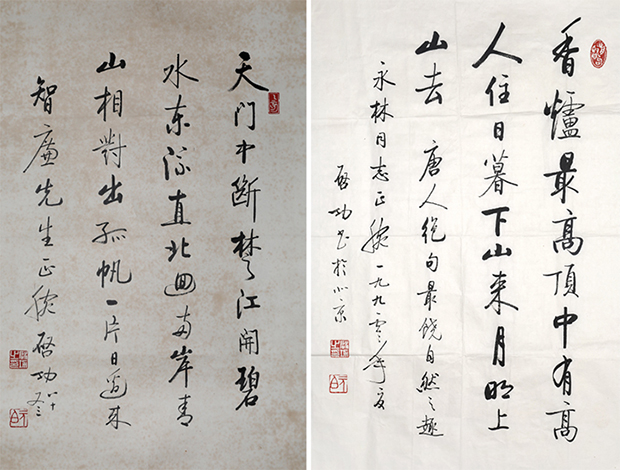 天门中斷楚江開碧
水东流直北迴两岸青
山相對出孤帆一片日邊来
智廉先生正腕 启功
香爐最高頂中有高
人住日暮下山来月明上
山去 唐人绝句最饶自然之趣
永林同志正腕 一九九零年夏
启功书於北京